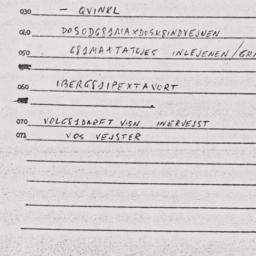 030 — QVINKL
040 DOSODGSIMAXDOSKSINDVEJNEN
050 GSIMAXTATOJES INLEJENEN/GRA
060 IBERGSJIPEXTAVORT
070 VOLGSIDAPFT VISN INERVEJST
072 VOS VEJSTER